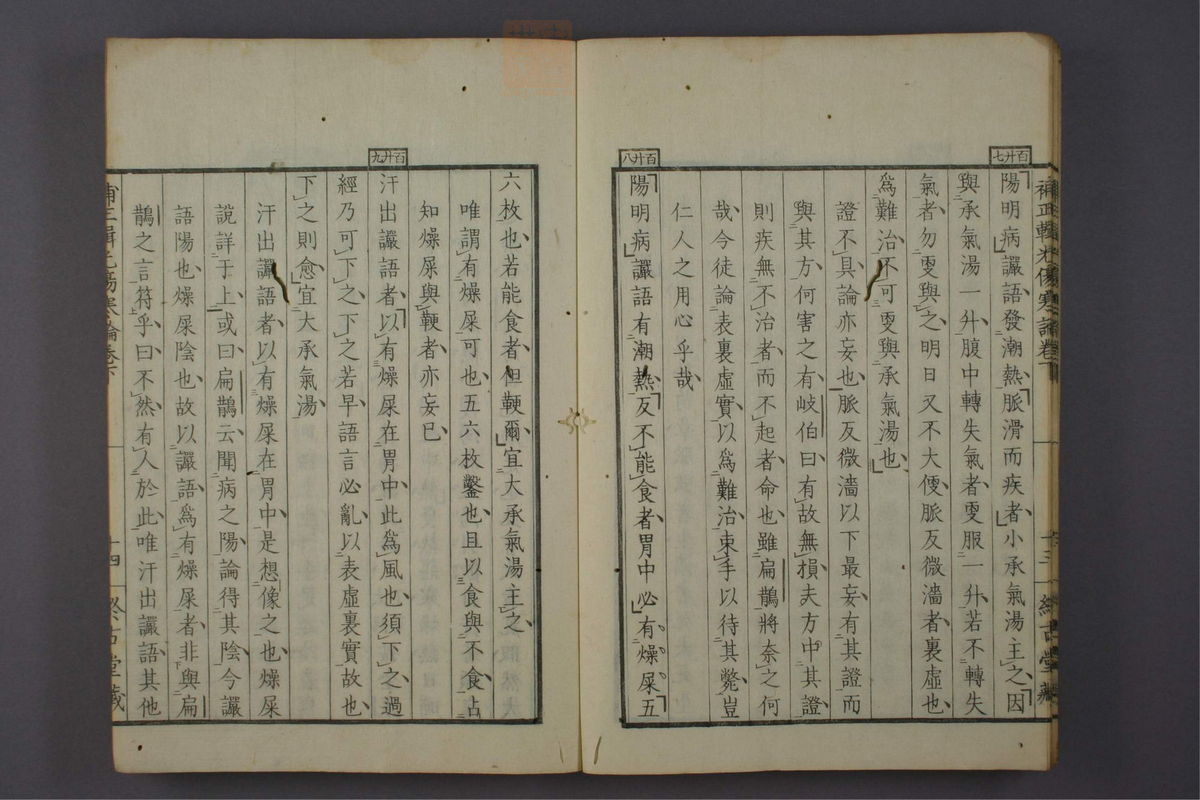 百廿七
陽明病讝語發潮熱脈滑而疾者小承氣湯主之因
與承氣湯一升腹中轉失氣者更服一升若不轉失
氣者勿更與之明日又不大便脈反微濇者裏虛也
爲難治不可更與承氣湯也
證不具論亦妄也脈反微濇以下最妄有其證而
與其方何害之有岐伯曰有故無損夫方中其證
則疾無不治者而不起者命也雖扁鵲將奈之何
哉今徒論表裏虛實以爲難治束手以待其斃豈
仁人之用心乎哉
百廿八
陽明病讝語有潮熱反不能食者胃中必有燥屎五
六枚也若能食者但鞕爾宜大承氣湯主之
唯謂有燥屎可也五六枚鑿也且以食與不食占
知燥屎與鞕者亦妄已
百廿九
汗出讝語者以有燥屎在胃中此爲風也須下之過
經乃可下之下之若早語言必亂以表虛裏實故也
下之則愈宜大承氣湯
汗出讝語者以有燥屎在胃中是想像之也燥屎
說詳于上或曰扁鵲云聞病之陽論得其陰今讝
語陽也燥屎陰也故以讝語爲有燥屎者非與扁
鵲之言符乎曰不然有人於此唯汗出讝語其他
十四